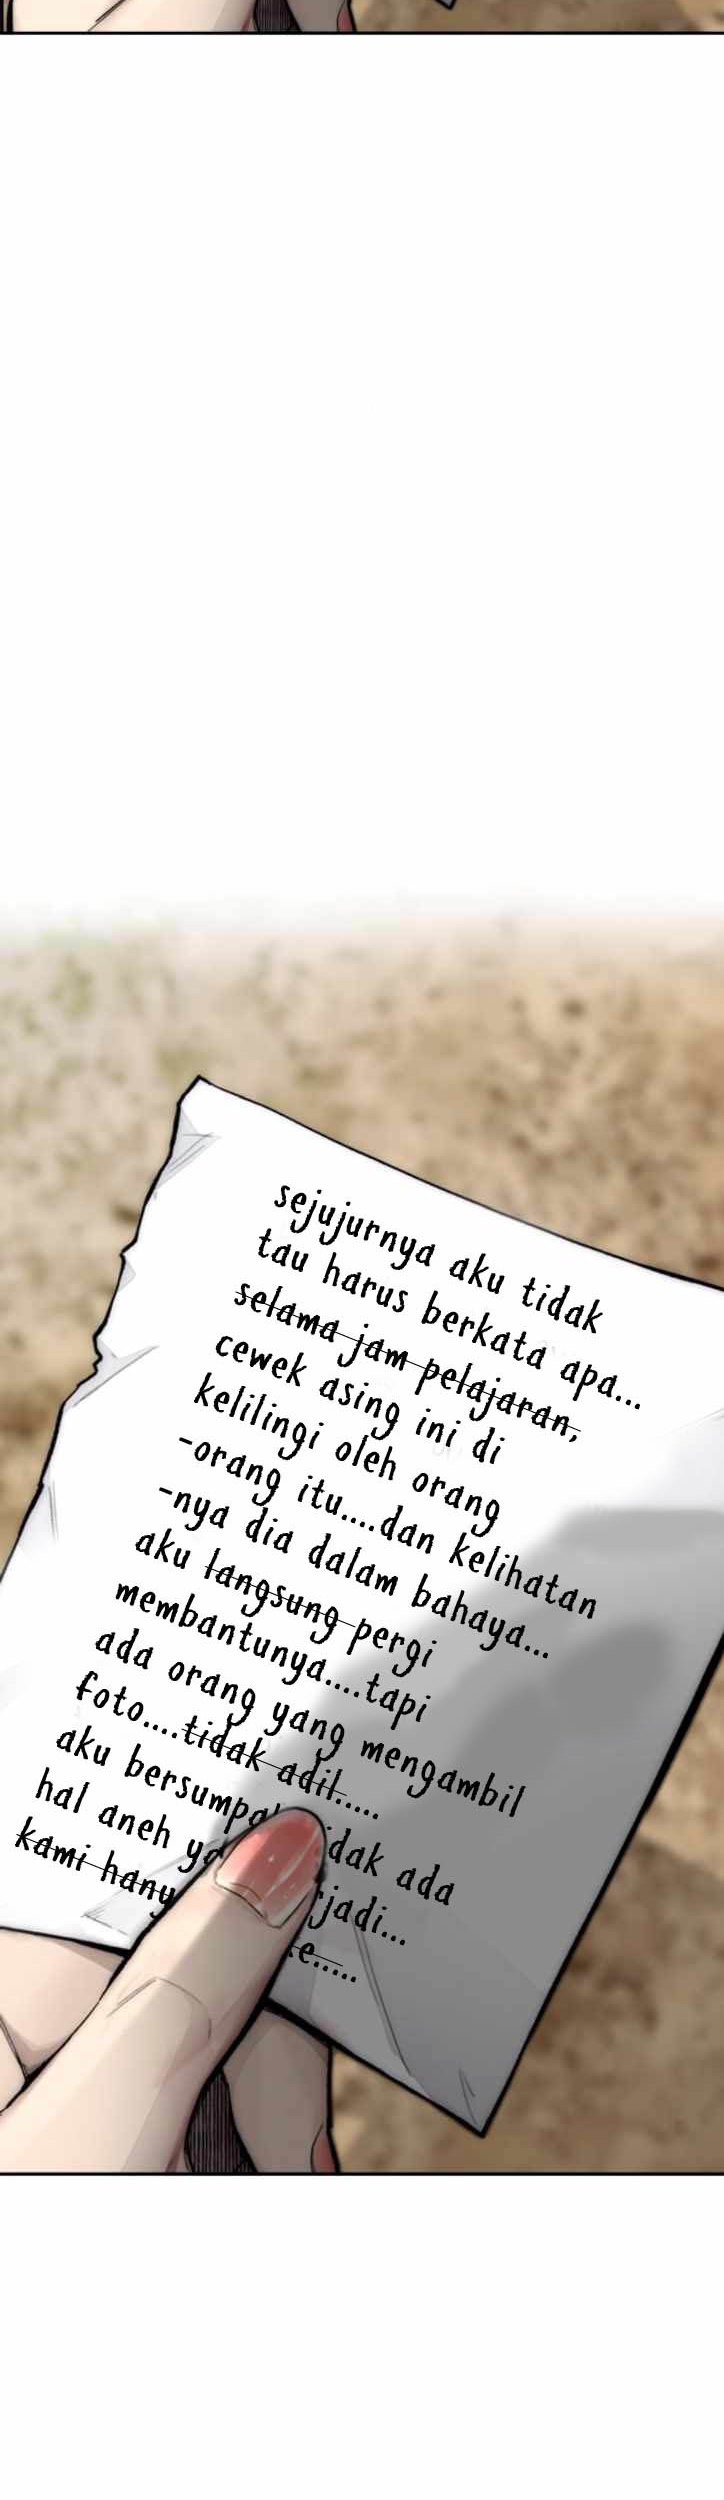 sejujurnya aku tidak
tau harus berkata apa...
selama jam pelajaran,
cewek asing ini di
kelilingi oleh orang
-orang itu....dan kelihatan
-nya dia dalam bahaya...
aku langsung pergi
membantunya....tapi
ada orang yang mengambil
foto....tidak adil.....
aku bersumpah tidak ada
hal aneh jadi...
kami